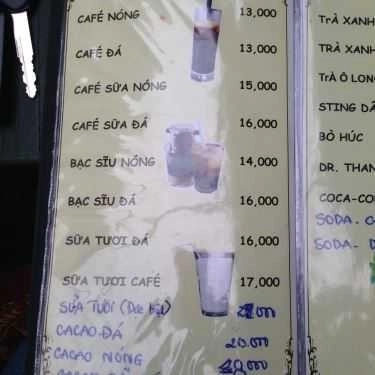 CAFÉ NÓNG 13,000
CAFÉ ĐÁ 13,000
CAFÉ SỮA NÓNG 15,000
CAFÉ SỮA ĐÁ 16,000
BẠC SĨU NÓNG 14,000
BẠC SĨU ĐÁ 16,000
SỮA TƯƠI ĐÁ 16,000
SỮA TƯƠI CAFÉ 17,000
SỮA TƯƠI
CACAO ĐÁ 20.000
CACAO NÓNG
TRÀ XANH
TRÀ XANH
TRÀ Ô LON
STING DÂ
BÒ HÚC
DR. THAN
COCA-CO
SODA. C
SODA-